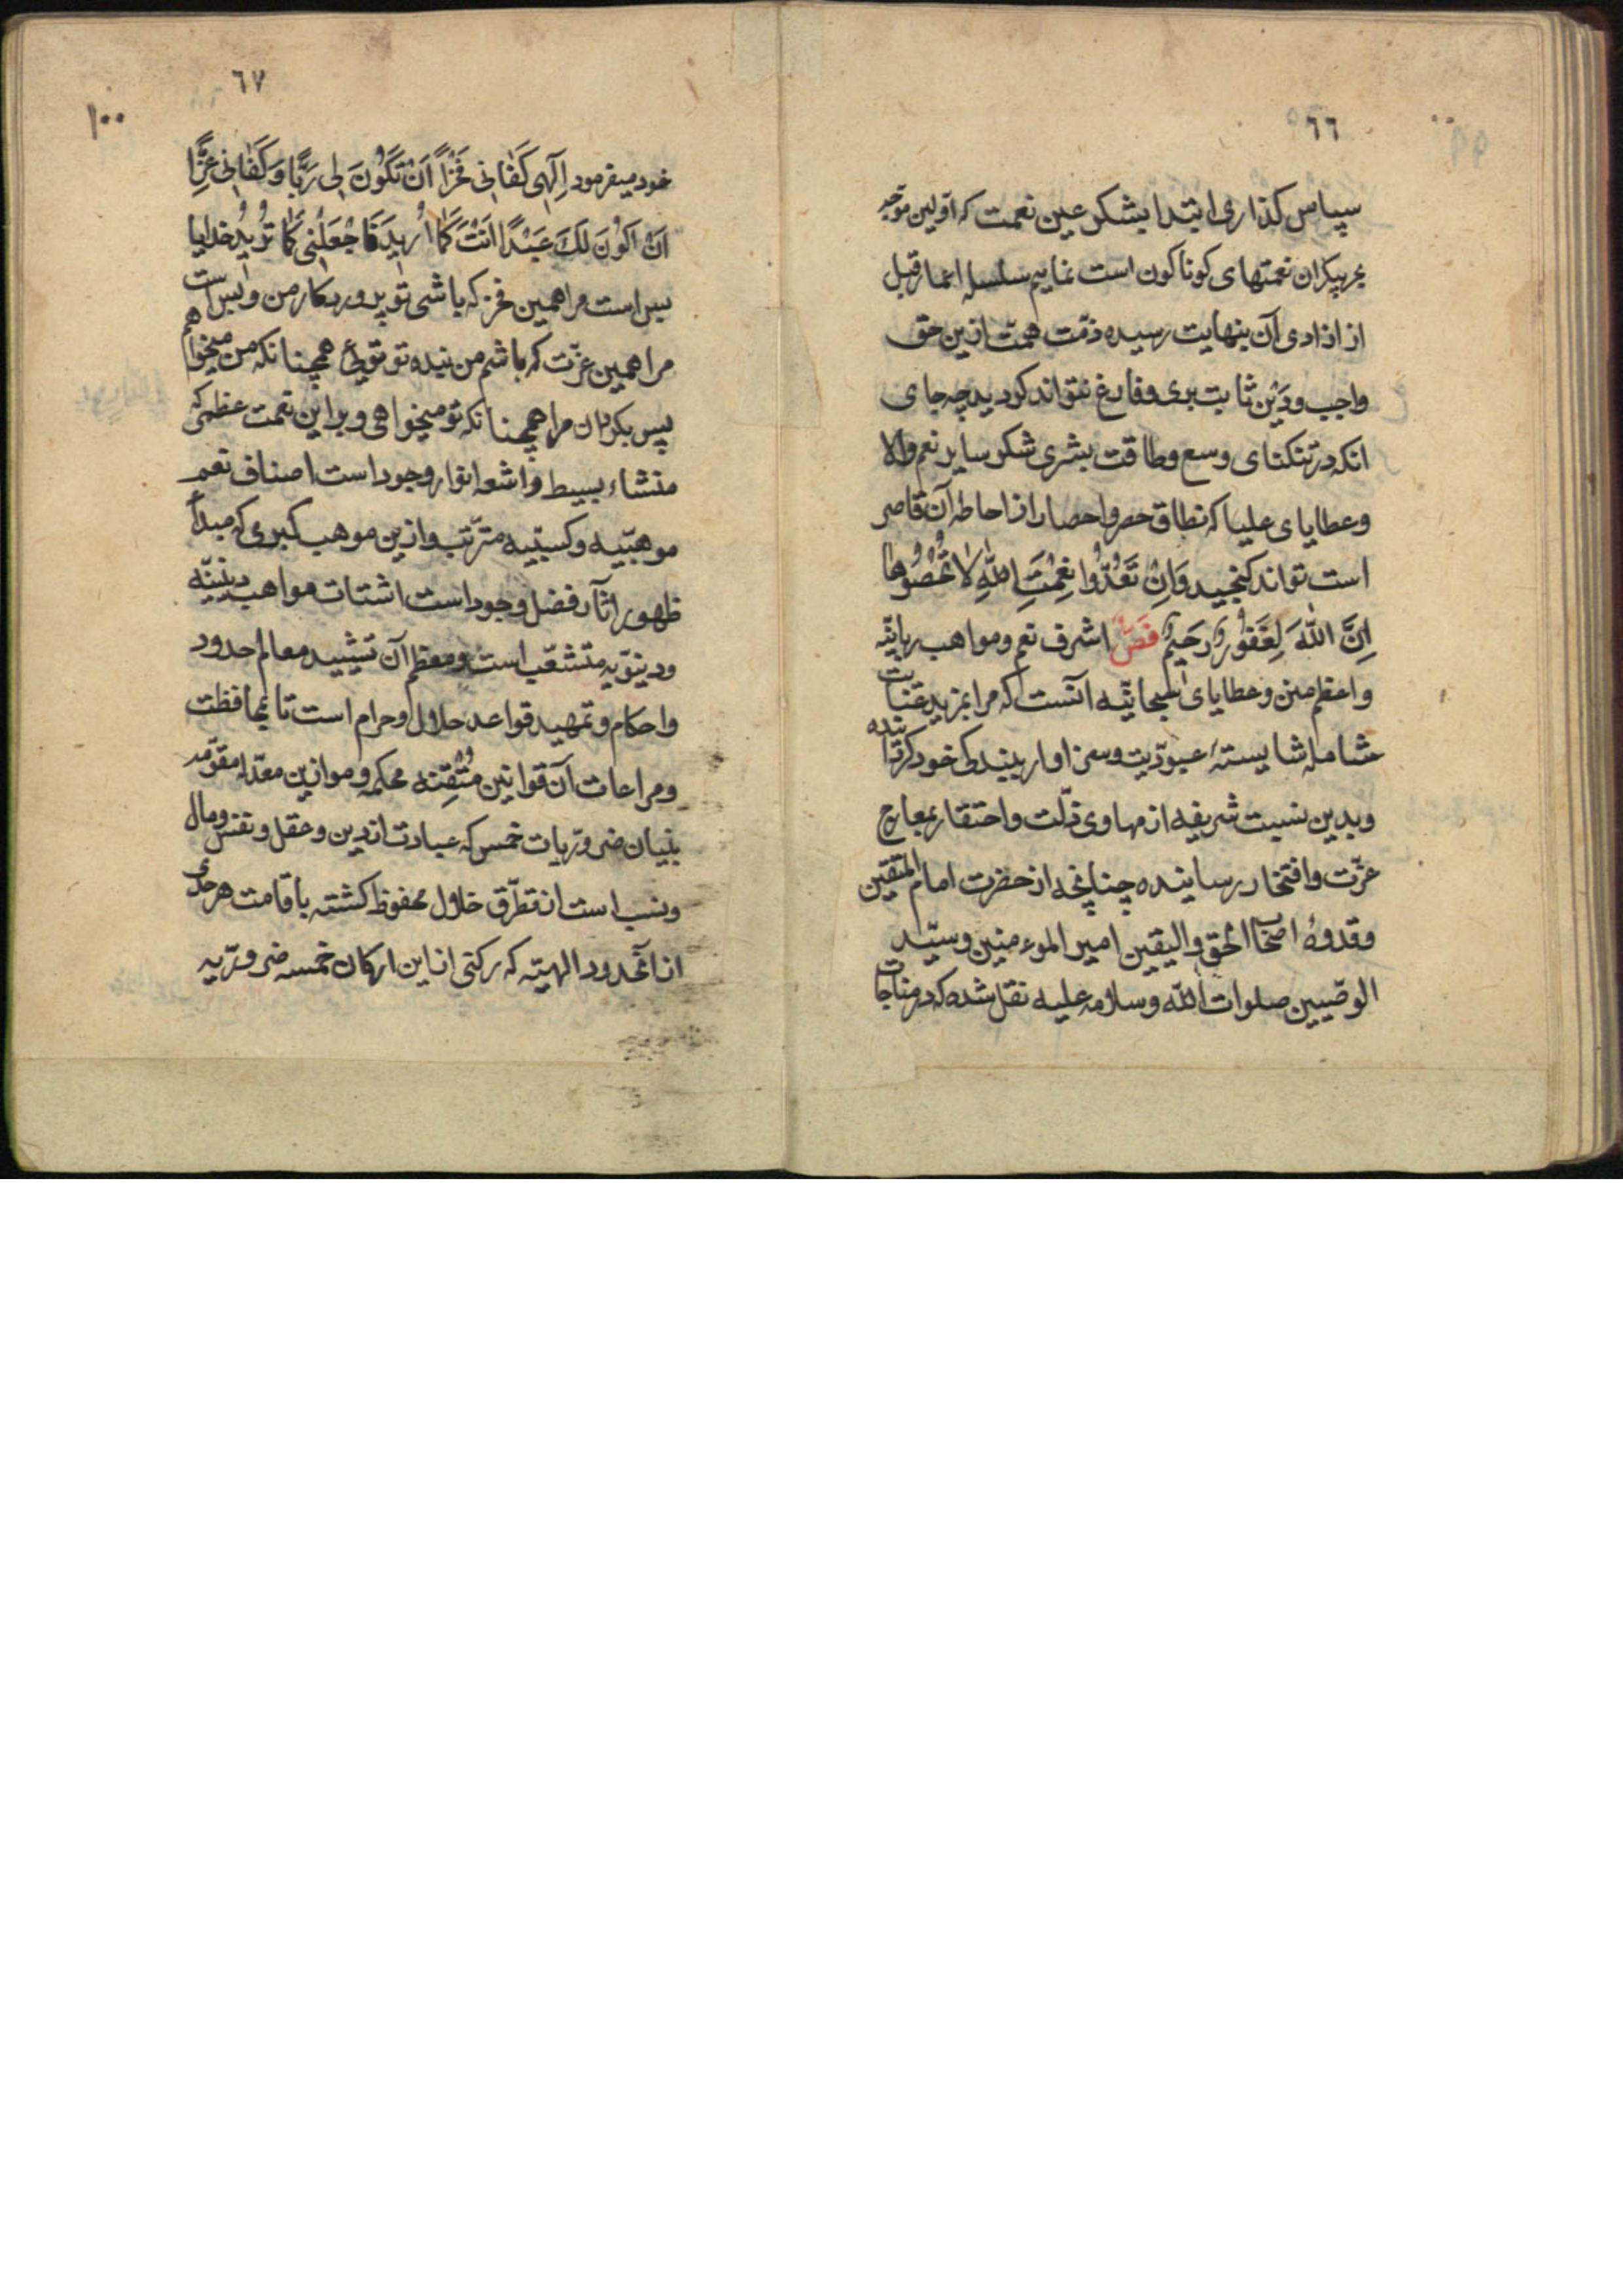 ٦٦
سپاس کذاری ابتدا بشکر عین نعمت که اوّلین موّجه
بحر بیکران نعمتهای کوناکون است نمایم سلسله اعمار قبل
از ادای آن بنهایت رسیده ذمّت همّت ازین حق
واجب ودَیْن ثابت بری وفارغ نتواند کردید چه جای
انکه در تنکنای وسع وطاقت بشری شکر سایر نعم والا
وعطایای علیا که نطاق حصر واحصا از احاطه آن قاصر
است تواند کنجید وَاِنْ تَعُدُّوا نِعْمَتَ اللّٰهِ لا تُحْصُوْها
اِنَّ اللّٰهَ لَغَفُوْرٌ رَحَیْمٌ فَصٌّ اشرف نعم ومواهب ربانیّه
واعظم منن وعطایای سبحانیّه آنست که مرا بمزید عنایت
شامله شایستهٔ عبودّیت وسزاوار بندکی خود کردانیده
وبدین نسبت شریفه از مهاوی ذلّت واحتقار بمعارج
عزّت وافتخار رسانیده چنانچه از حضرت امام المتّقین
وقدوهٔ اصحاب الحق والیقین امیر الموءمنین وسیّد
الوصّیین صلوات اللّٰه وسلامه علیه نقل شده که در مناجات
٦٧
١٠٠
خود میفرمود اِلٓهی کَفانی فَخْراً اَنْ تَکُوْنَ لی رَبًّا وَکَفانی عِزًّا
اَنْ اَکُوْنَ لَکَ عَبْدًا اَنْتَ کَمٰا اُرِیدُ فَاجْعَلْنی کَمٰا تُرِیْدُ خدایا
بس است مرا همین فخر که باشی تو پروردکار من وبس است
مرا همین عزّت که باشم من بنده تو توئی همچنانکه من میخواهم
پس بکردان مرا همچنانکه تو میخواهی وبر این نعمت عظمی که
منشاء بسیط واشعه انوار وجود است اصناف نعم
موهبّیه وکسبّیه مترّتب وازین موهب کبری که مبدأ
ظهور اثار فضل وجود است اشتات مواهب دینیّه
ودینوّیه متشعّب است ومعظم آن تشیید معالم حدود
واحکام وتمهید قواعد حلال وحرام است تا بمحافظت
ومراعات آن قوانین مُتْقِنه محکمه وموازین معدّله مقوّمه
بنیان ضروّریات خمس که عبادت از دین وعقل ونفس ومال
ونسب است از تطرّق خلال محفوظ کشته باقامت هر حدّی
از آنحدود الهیّه که رکنی از این ارکان خمسه ضروّریه